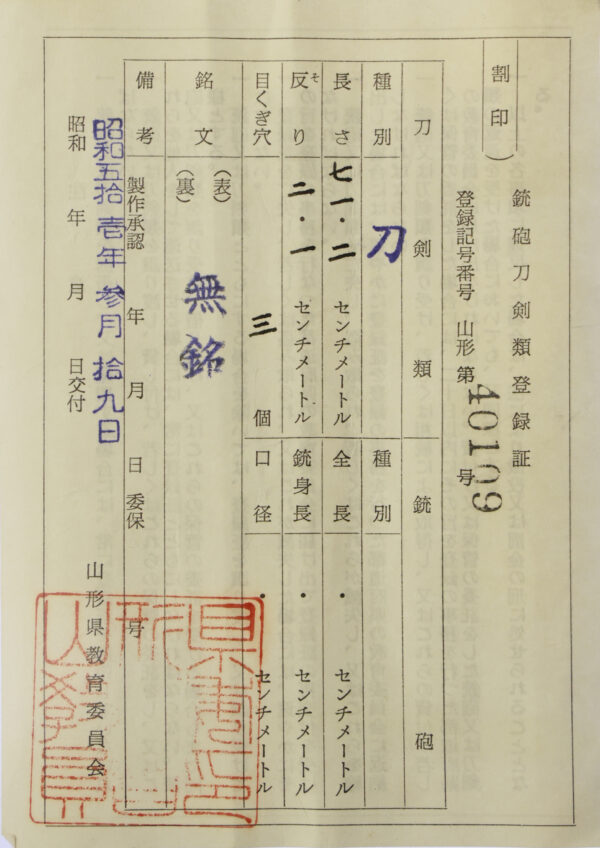 割印
銃砲刀剣類登録証
登録記号番号 山形 第 40109 号
刀剣類
銃砲
種別 刀
種別
長さ 七一・二 センチメートル
全長 ・ センチメートル
反り そ 二・一 センチメートル
銃身長 ・ センチメートル
目くぎ穴 三 個
口径 ・ センチメートル
銘文 (表) 無銘
(裏)
備考 製作承認 年 月 日 委保 号
昭和 年 月 日交付
昭和五拾壱年参月拾九日
山形県教育委員会